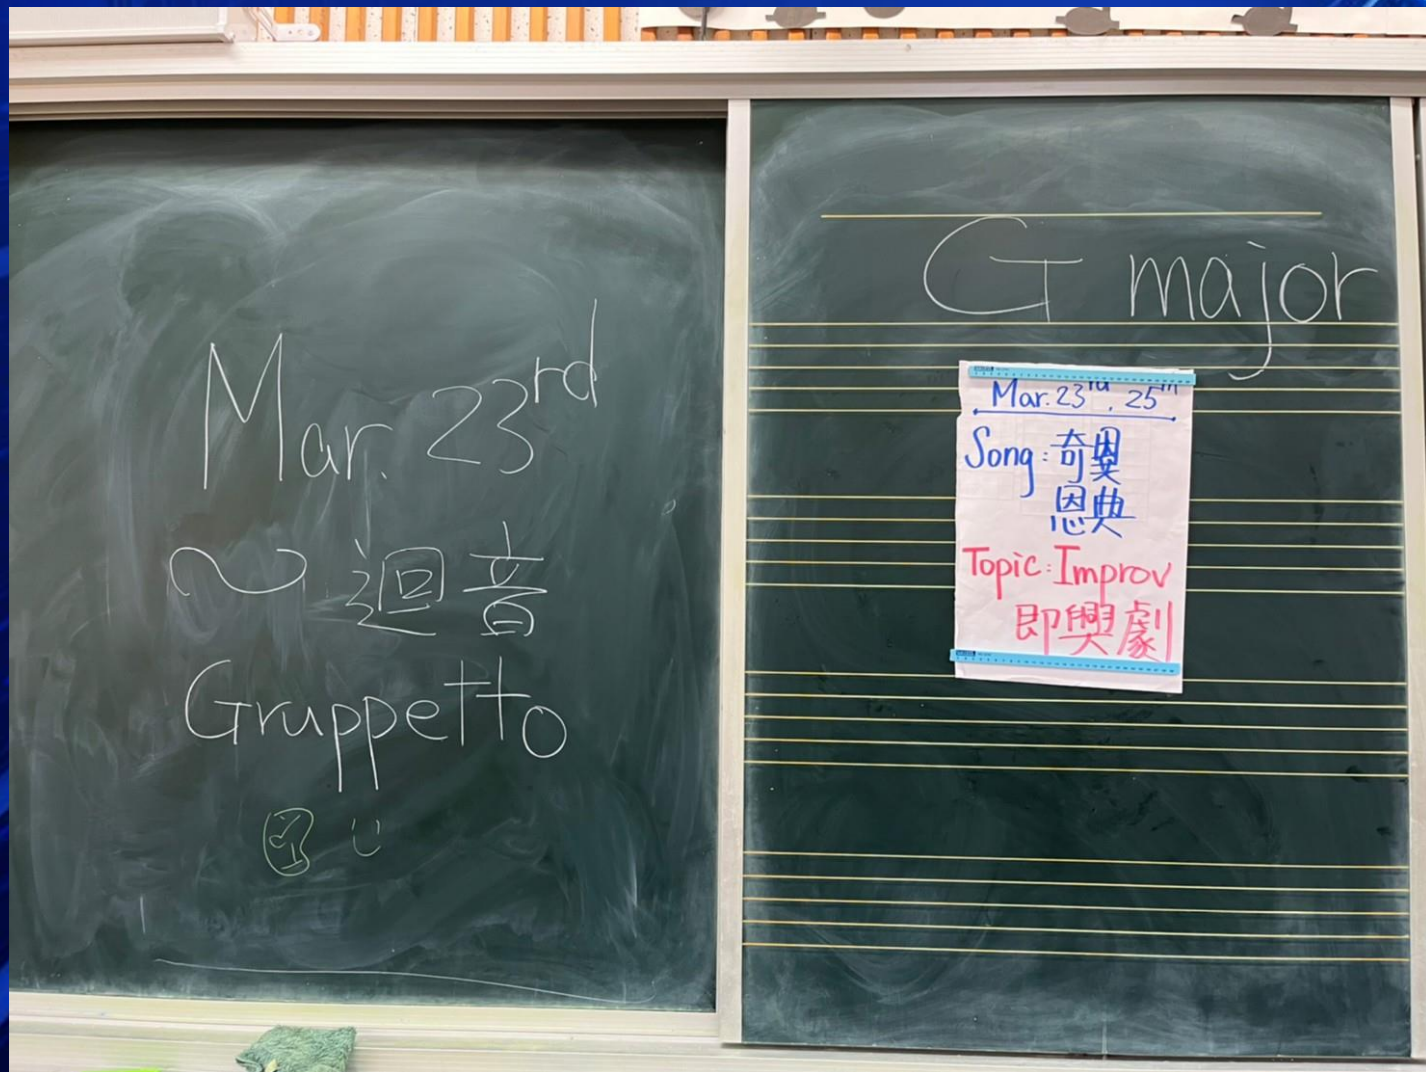 Mar. 23rd
~ 迴音
Gruppetto
G major
Mar. 23rd, 25th
Song: 奇異
恩典
Topic: Improv
即興劇